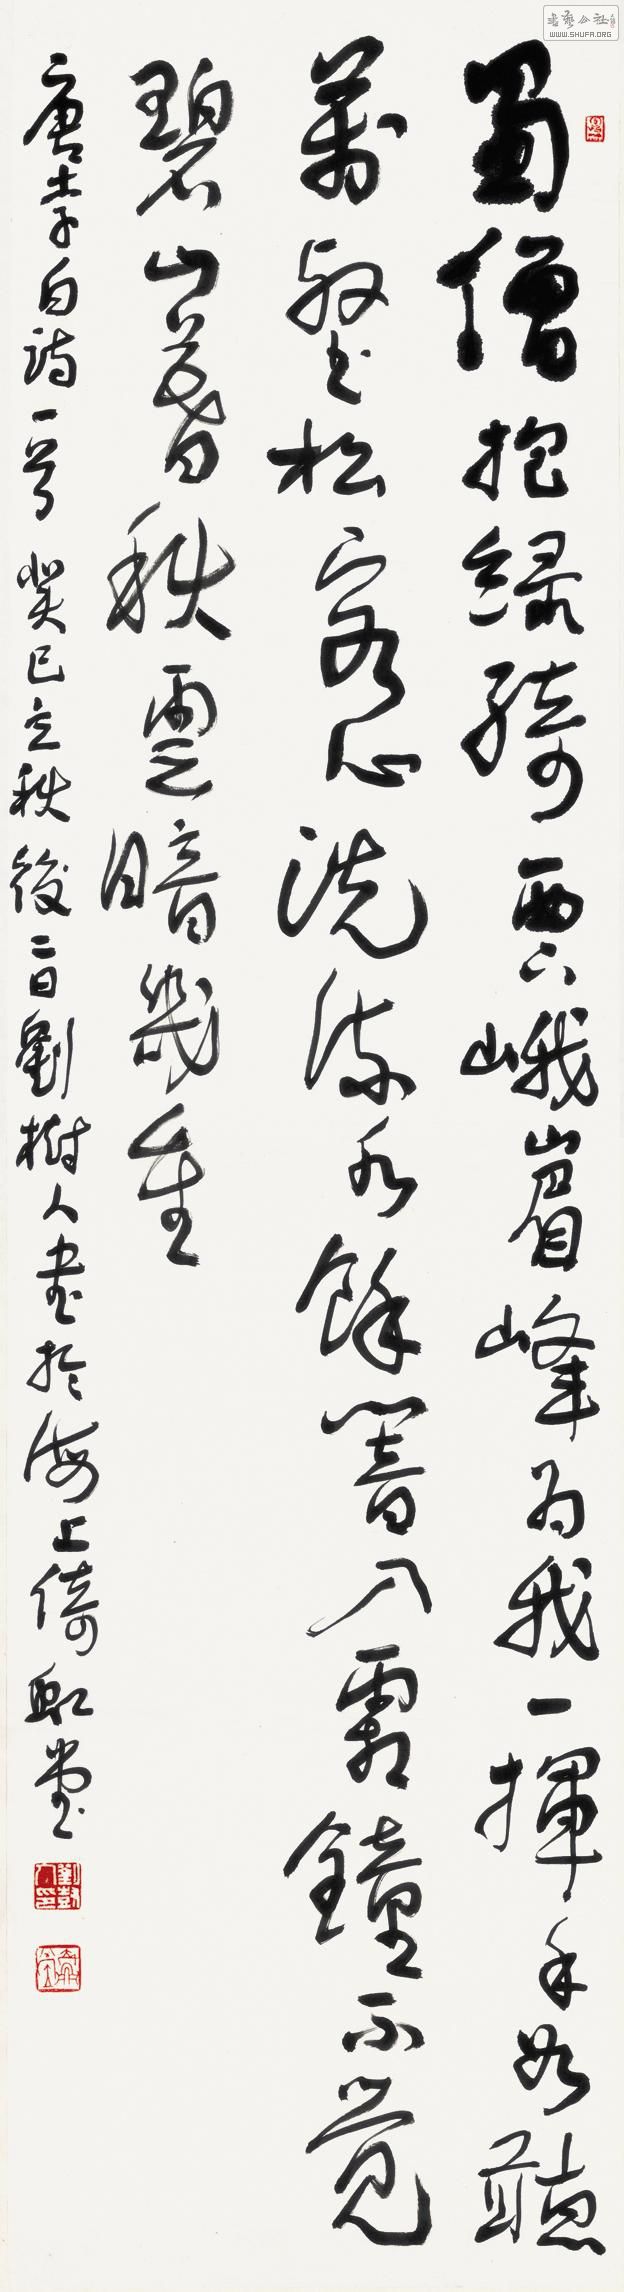 書藝公社
WWW.SHUFA.ORG
蜀僧抱綠綺西下峨眉峰為我一揮手如聽
萬壑松客心洗流水餘響入霜鐘不覺
碧山暮秋雲暗幾重
唐李白詩一首癸巳立秋後二日劉樹人書於海上倚虹堂
劉樹人印